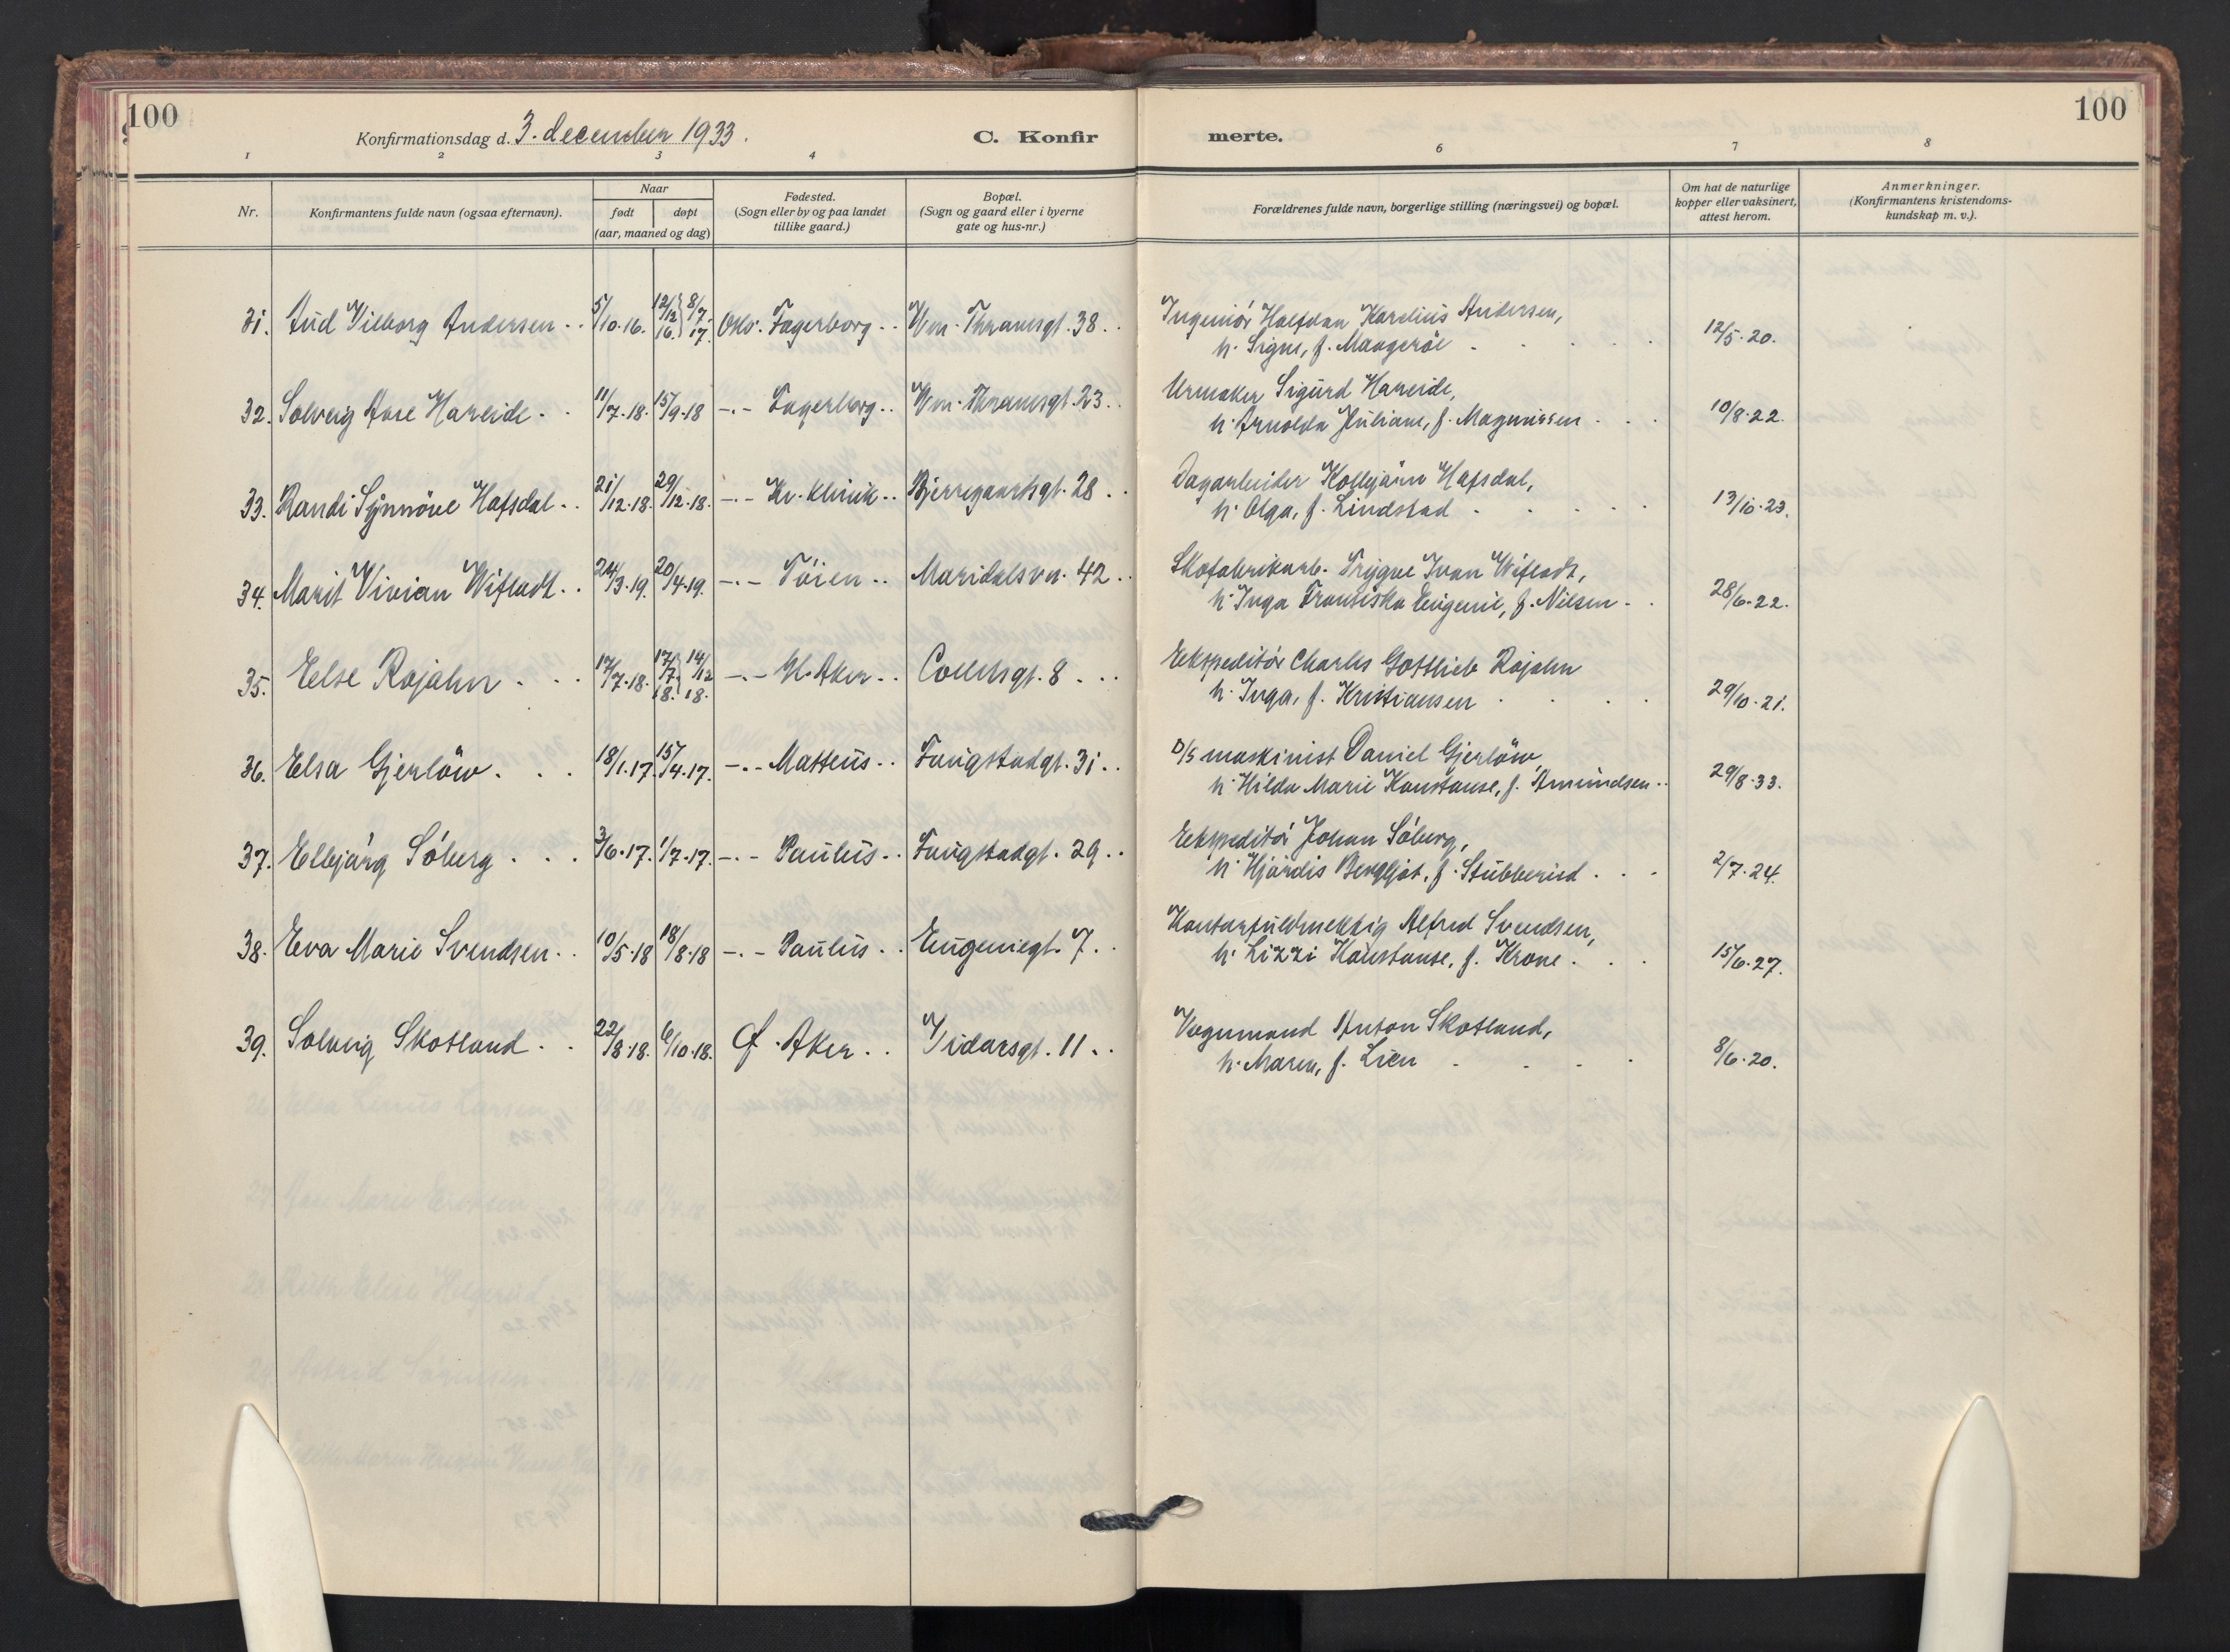 100
100
Konfirmationsdag d. 3. december 1933.
C. Konfir
merte.
1 2 3 4 6 7 8
Nr.
Konfirmantens fulde navn (ogsaa efternavn).
Naar
født
døpt
(aar, maaned og dag)
Fødested.
(Sogn eller by og paa landet
tillike gaard.)
Bopæl.
(Sogn og gaard eller i byerne
gate og hus-nr.)
Forældrenes fulde navn, borgerlige stilling (næringsvei) og bopæl.
Om hat de naturlige
kopper eller vaksinert,
attest herom.
Anmerkninger.
(Konfirmantens kristendoms-
kundskap m. v.).
31. Aud Vilborg Andersen . . 5/10.16. 12/12 16. } 8/7. 17. Oslo. Fagerborg . . Wm. Thranesgt. 38 . .
Ingeniör Halfdan Karelius Andersen,
h. Signe, f. Maugeröe . . . . . 12/5.20.
32. Solveig Aase Hareide . . 11/7.18. 15/9.18 -.- Fagerborg . . Wm. Thranesgt. 23 . .
Urmaker Sigurd Hareide,
h. Arnolda Juliane, f. Magnussen . . . 10/8.22.
33. Randi Synnöve Hafsdal . . 21/12.18. 29/12.18. -.- Kv. klinik . . Bjerregaardsgt. 28 . .
Dagarbeider Kolbjörn Hafsdal,
h. Olga, f. Lindstad . . . . . 13/10.23.
34. Marit Vivian Wifladt . . 24/3.19. 20/4.19. -.- Töien . . Maridalsvn. 42 . .
Skofabrikarb. Trygve Ivan Wifladt,
h. Inga Fransiska Eugenie, f. Nilsen . . 28/6.22.
35. Else Rojahn . . . 17/7.18. 17/7 18. } 14/12 18. -.- Gl. Aker . . Colletsgt. 8 . . .
Ekspeditör Charles Gottlieb Rojahn
h. Inga, f. Kristiansen . . . . 29/10.21.
36. Elsa Gjerlöw . . . 18/1.17. 15/4.17. -.- Matteus . . Fougstadgt. 31 . .
D/S maskinist Daniel Gjerlöw,
h. Hilda Marie Konstanse, f. Amundsen . . 29/8.33.
37. Elbjörg Söberg . . . 3/6.17. 1/7.17. -.- Paulus . . Fougstadgt. 29 . .
Ekspeditör Johan Söberg,
h. Hjördis Bergljot, f. Stubberud . . . 2/7.24.
38. Eva Marie Svendsen . . 10/5.18 18/8.18 -.- Paulus . . Eugeniegt. 7 . .
Kontorfuldmektig Alfred Svendsen,
h. Lizzi Konstanse, f. Krone . . . 15/6.27.
39. Solveig Skotland . . 22/8.18. 6/10.18. Ö. Aker . . Vidarsgt. 11 . .
Vognmand Anton Skotland,
h. Maren, f. Lien . . . . 8/6.20.